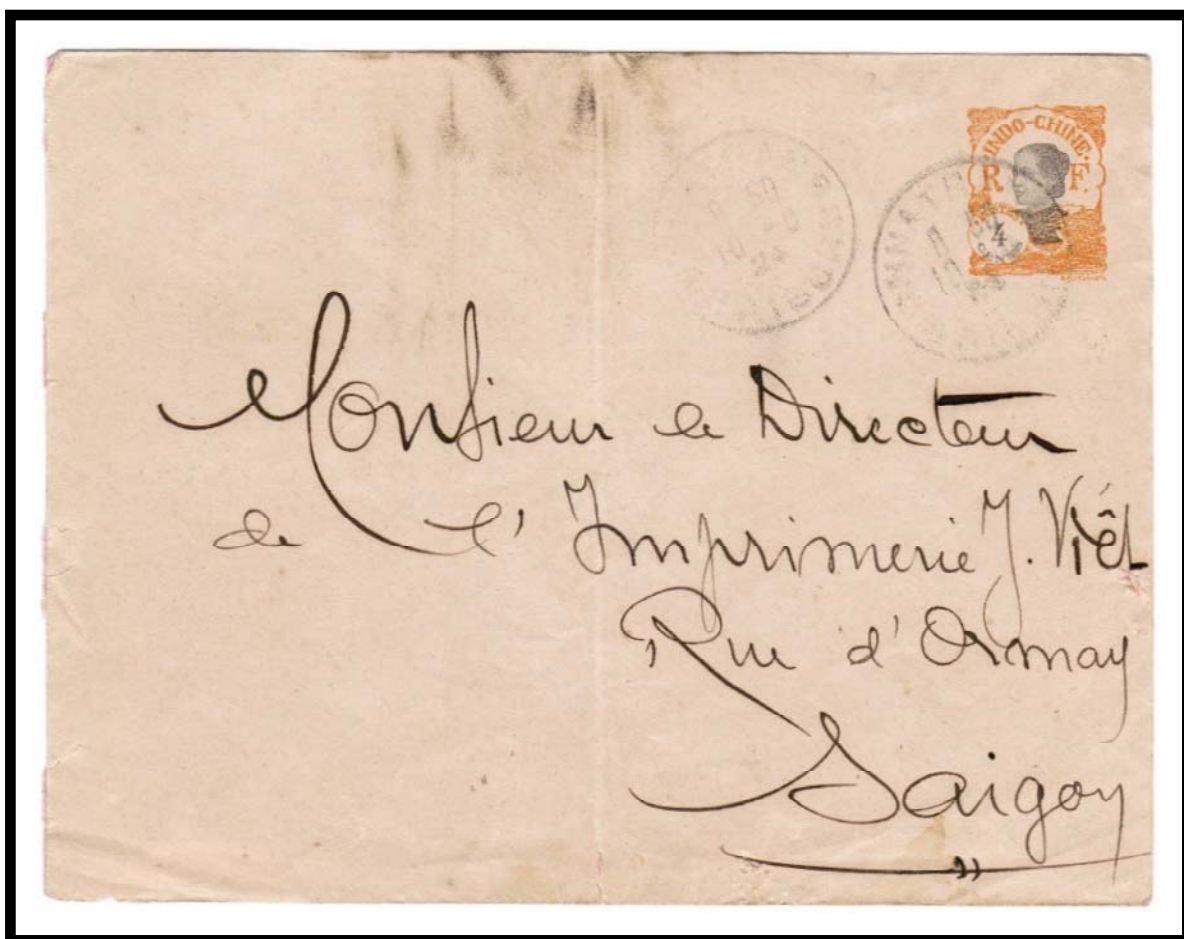 INDO-CHINE
R F
4
Monsieur le Directeur
de l'Imprimerie J. Viêt
Rue d'Ormay
Saigon